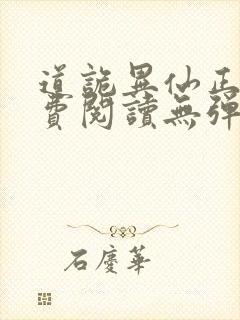 道詭異仙正
費閱讀無彈
石慶華